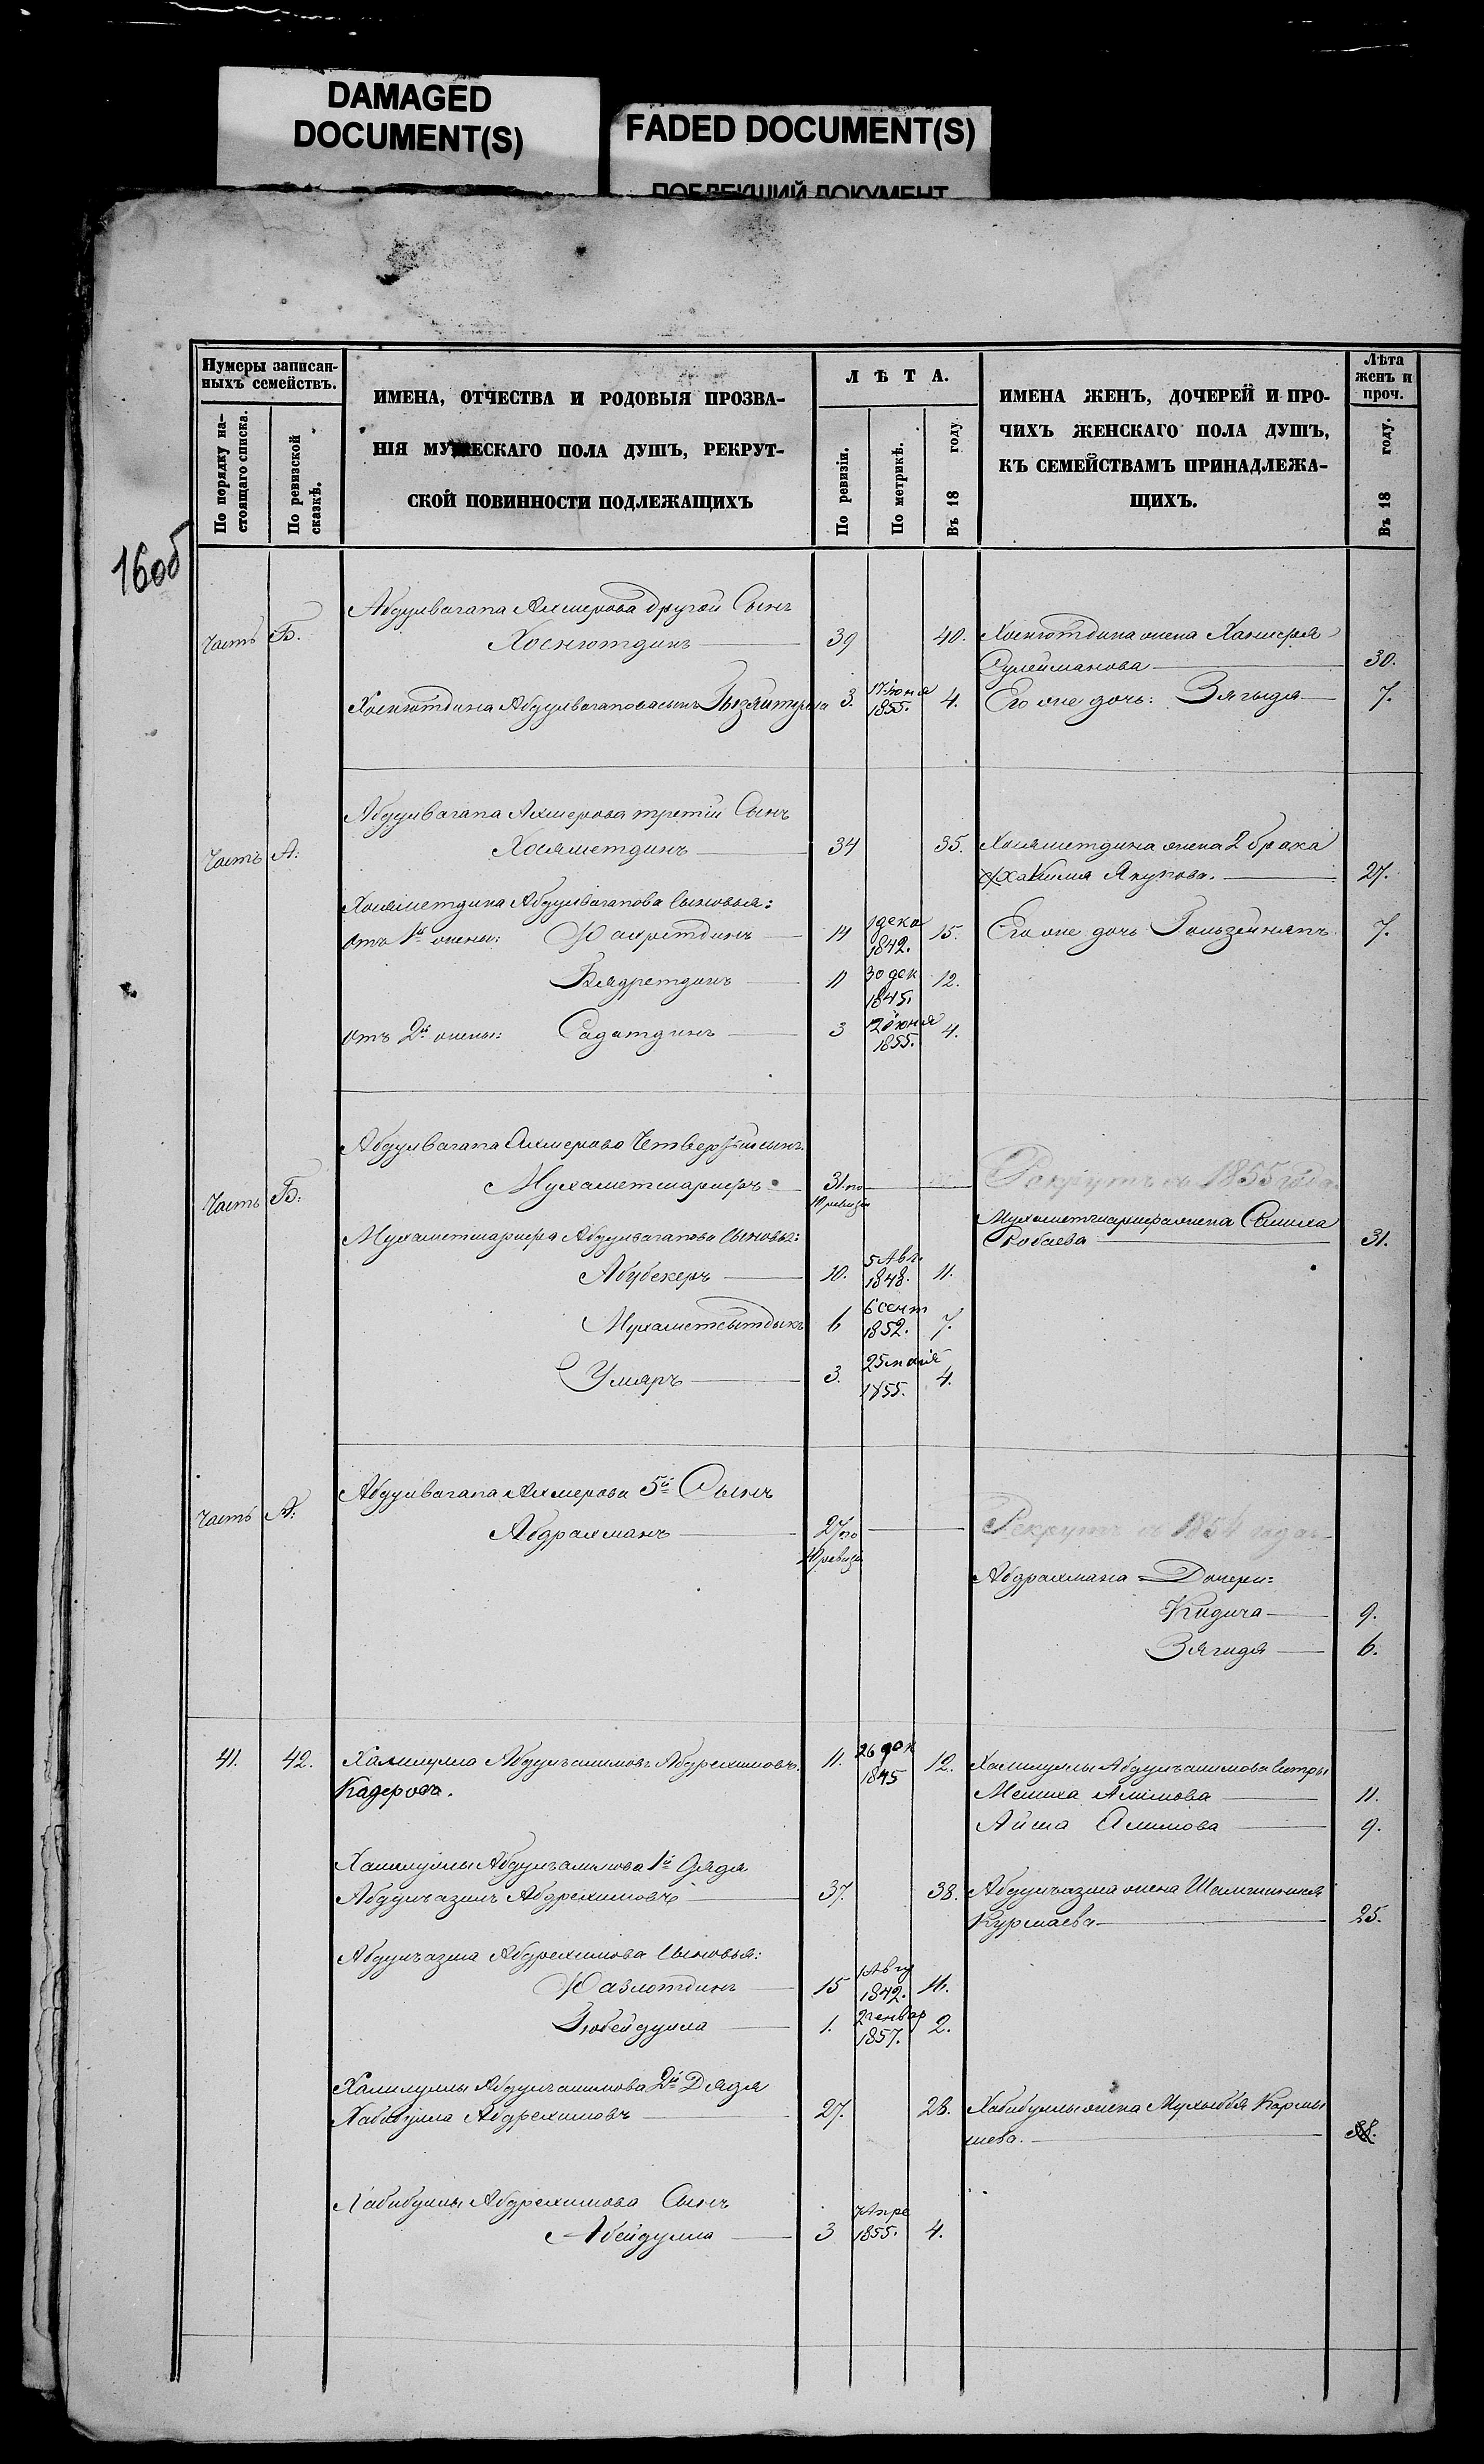 DAMAGED
DOCUMENT(S)
FADED DOCUMENT(S)
ПОБЛЕКШИЙ ДОКУМЕНТ
16об
Нумеры записан-
ныхъ семействъ.
По порядку на-
стоящаго списка.
По ревизской
сказкѣ.
ИМЕНА, ОТЧЕСТВА И РОДОВЫЯ ПРОЗВА-
НІЯ МУЖЕСКАГО ПОЛА ДУШЪ, РЕКРУТ-
СКОЙ ПОВИННОСТИ ПОДЛЕЖАЩИХЪ
ЛѢТА.
По ревизіи.
По метрикѣ.
Въ 18 году.
ИМЕНА ЖЕНЪ, ДОЧЕРЕЙ И ПРО-
ЧИХЪ ЖЕНСКАГО ПОЛА ДУШЪ,
КЪ СЕМЕЙСТВАМЪ ПРИНАДЛЕЖА-
ЩИХЪ.
Лѣта
женъ и
проч.
Въ 18 году.
Абдулвагапа Ахмерова другой Сынъ
Часть Б. Хоснютдинъ 39 40. Хоснютдина жена
Сулейманова 30.
Хоснютдина Абдулвагапова сынъ 3. 17 Іюня 1855. 4. Его же дочь: Зягыдя 7.
Абдулвагапа Ахмерова третій Сынъ
Часть А. Хосяметдинъ 34 35. Хосяметдина жена 2 брака
Хакимя Якупова. 27.
Хосяметдина Абдулвагапова Сыновья:
отъ 1й жены: Фахретдинъ 14 1 дека 1842. 15. Его же дочь 7.
Бядретдинъ 11 30 дек 1845. 12.
отъ 2й жены: Садатдинъ 3 12 Іюня 1855. 4.
Абдулвагапа Ахмерова Четвертый сынъ
Часть Б. Мухаметшарифъ 31. по 10 ревизіи Рекрутъ съ 1855 года
Мухаметшарифа жена Салиха
31.
Мухаметшарифа Абдулвагапова Сыновья:
Абубекеръ 10. 5 Авг. 1848. 11.
Мухаметсытдыкъ 6 6 сент 1852. 7.
Умяръ 3. 25 маія 1855. 4.
Абдулвагапа Ахмерова 5й Сынъ
Часть А. Абдрахманъ 27 по 10 ревизіи Рекрутъ съ 1854 года
Абдрахмана Дочери:
Хидича 9.
Зягидя 6.
41. 42. Халиулла Абдулъалимовъ Абдрехимовъ 11. 26 дек 1845 12. Халиуллы Абдулъалимова Сестры
Кадеровъ.
Мелиха Алимова 11.
Айша Алимова 9.
Халиуллы Абдулъалимова 1й Дядя
Абдулъазизъ Абдрехимовъ 37. 38. Абдулъазиза жена
Курмаева 25.
Абдулъазиза Абдрехимова Сыновья:
Фазлютдинъ 15 1 Авгу 1842. 16.
Зюбейдулла 1. 2 генвар 1857. 2.
Халиуллы Абдулъалимова 2й Дядя
Хабибулла Абдрехимовъ 27. 28. Хабибуллы жена
28.
Хабибуллы Абдрехимова Сынъ
Абейдулла 3 7 Апре 1855. 4.